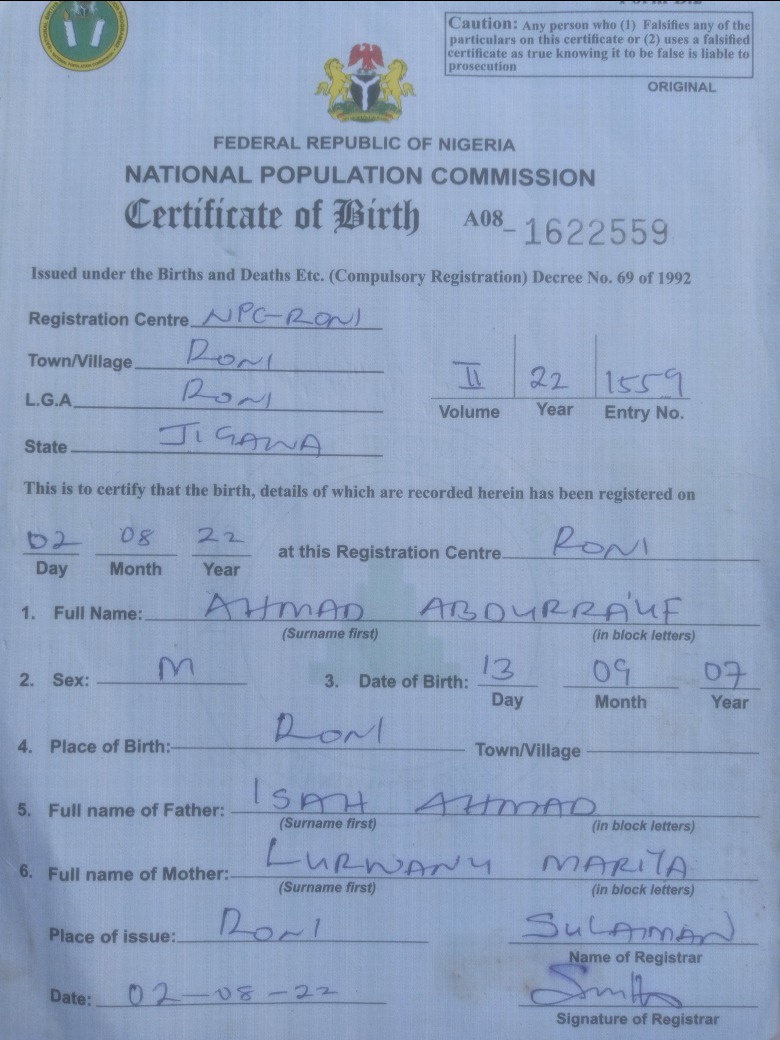 Caution: Any person who (1) Falsifies any of the
particulars on this certificate or (2) uses a falsified
certificate as true knowing it to be false is liable to
prosecution
ORIGINAL
FEDERAL REPUBLIC OF NIGERIA
NATIONAL POPULATION COMMISSION
Certificate of Birth A08-1622559
Issued under the Births and Deaths Etc. (Compulsory Registration) Decree No. 69 of 1992
Registration Centre NPC-RONI
Town/Village RONI
L.G.A RONI
II 22 1559
Volume Year Entry No.
State JIGAWA
This is to certify that the birth, details of which are recorded herein has been registered on
02 08 22 at this Registration Centre RONI
Day Month Year
1. Full Name: AHMAD ABDURRA'UF
(Surname first) (in block letters)
2. Sex: M 3. Date of Birth: 13 09 07
Day Month Year
4. Place of Birth: RONI Town/Village
5. Full name of Father: ISAH AHMAD
(Surname first) (in block letters)
6. Full name of Mother: LURWANU MARIYA
(Surname first) (in block letters)
Place of issue: RONI SULAIMAN
Name of Registrar
Date: 02-08-22
Signature of Registrar